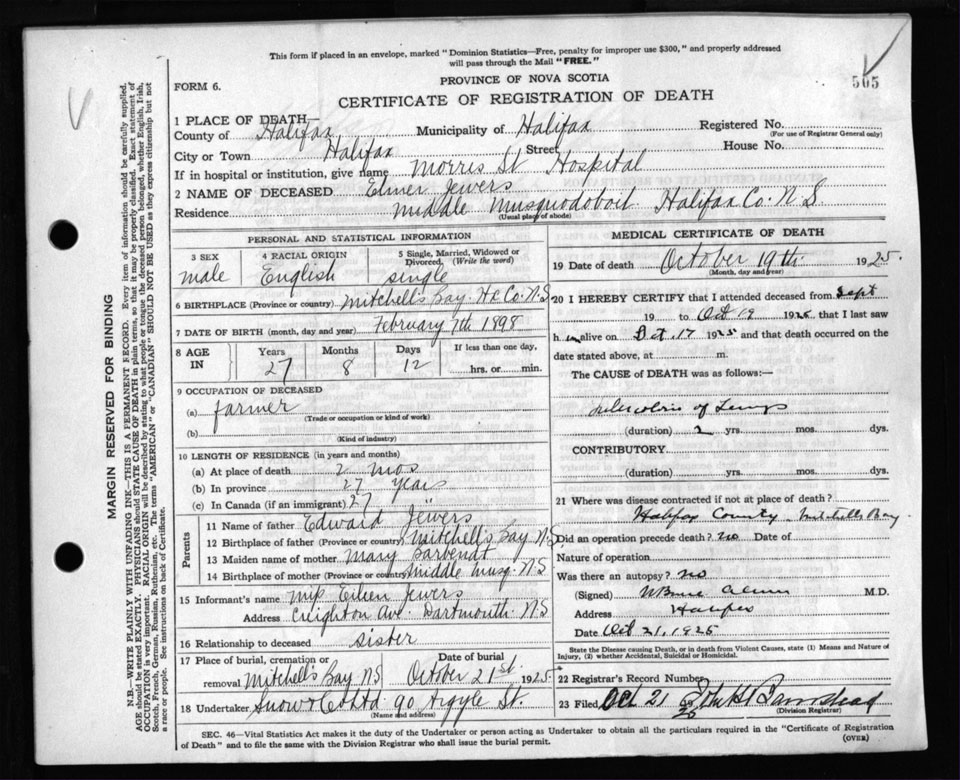 This form if placed in an envelope, marked "Dominion Statistics—Free, penalty for improper use $300," and properly addressed
will pass through the Mail "FREE."
505
FORM 6.
PROVINCE OF NOVA SCOTIA
CERTIFICATE OF REGISTRATION OF DEATH
1 PLACE OF DEATH—
County of Halifax Municipality of Halifax Registered No.
(For use of Registrar General only)
City or Town Halifax Street House No.
If in hospital or institution, give name Morris St Hospital
2 NAME OF DECEASED Elmer Jewers
Residence Middle Musquodoboit Halifax Co. N S
(Usual place of abode)
PERSONAL AND STATISTICAL INFORMATION
3 SEX 4 RACIAL ORIGIN 5 Single, Married, Widowed or Divorced. (Write the word)
male English single
6 BIRTHPLACE (Province or country) Mitchell's Bay. Hx Co. N.S
7 DATE OF BIRTH (month, day and year) February 7th 1898
8 AGE IN Years Months Days If less than one day,
27 8 12 hrs. or min.
9 OCCUPATION OF DECEASED
(a) farmer
(Trade or occupation or kind of work)
(b)
(Kind of industry)
10 LENGTH OF RESIDENCE (in years and months)
(a) At place of death 2 mos
(b) In province 27 years
(c) In Canada (if an immigrant) 27 "
Parents
11 Name of father Edward Jewers
12 Birthplace of father (Province or country) Mitchell's Bay N S
13 Maiden name of mother Mary
14 Birthplace of mother (Province or country) Middle Musq. N.S
15 Informant's name Miss Eileen Jewers
Address Creighton Ave. Dartmouth N S
16 Relationship to deceased sister
17 Place of burial, cremation or removal Date of burial
Mitchells Bay N S October 21st 1925
18 Undertaker Snow & Co Ltd 90 Argyle St.
(Name and address)
MEDICAL CERTIFICATE OF DEATH
19 Date of death October 19th 1925.
(Month, day and year)
20 I HEREBY CERTIFY that I attended deceased from Sept
19 to Oct 19 1925 that I last saw
h im alive on Oct. 17 1925 and that death occurred on the
date stated above, at m.
The CAUSE of DEATH was as follows:—
Tuberculosis of Lungs
(duration) 2 yrs. mos. dys.
CONTRIBUTORY.
(duration) yrs. mos. dys.
21 Where was disease contracted if not at place of death?
Halifax County Mitchells Bay.
Did an operation precede death? no Date of
Nature of operation
Was there an autopsy? no
(Signed) M.D.
Address Halifax
Date Oct 21, 1925
State the Disease causing Death, or in death from Violent Causes, state (1) Means and Nature of
Injury, (2) whether Accidental, Suicidal or Homicidal.
22 Registrar's Record Number
23 Filed Oct 21 John H
(Division Registrar)
SEC. 46—Vital Statistics Act makes it the duty of the Undertaker or person acting as Undertaker to obtain all the particulars required in the "Certificate of Registration
of Death" and to file the same with the Division Registrar who shall issue the burial permit. (OVER)
MARGIN RESERVED FOR BINDING
N.B.—WRITE PLAINLY WITH UNFADING INK—THIS IS A PERMANENT RECORD. Every item of information should be carefully supplied.
AGE should be stated EXACTLY. PHYSICIANS should STATE CAUSE OF DEATH in plain terms, so that it may be properly classified. Exact statement of
OCCUPATION is very important. RACIAL ORIGIN will be described by stating to what people or tongue the deceased person belonged, whether English, Irish,
Scotch, French, German, Russian, Ruthenian, etc. The terms "AMERICAN" or "CANADIAN" SHOULD NOT BE USED as they express citizenship but not
a race or people. See instructions on back of Certificate.